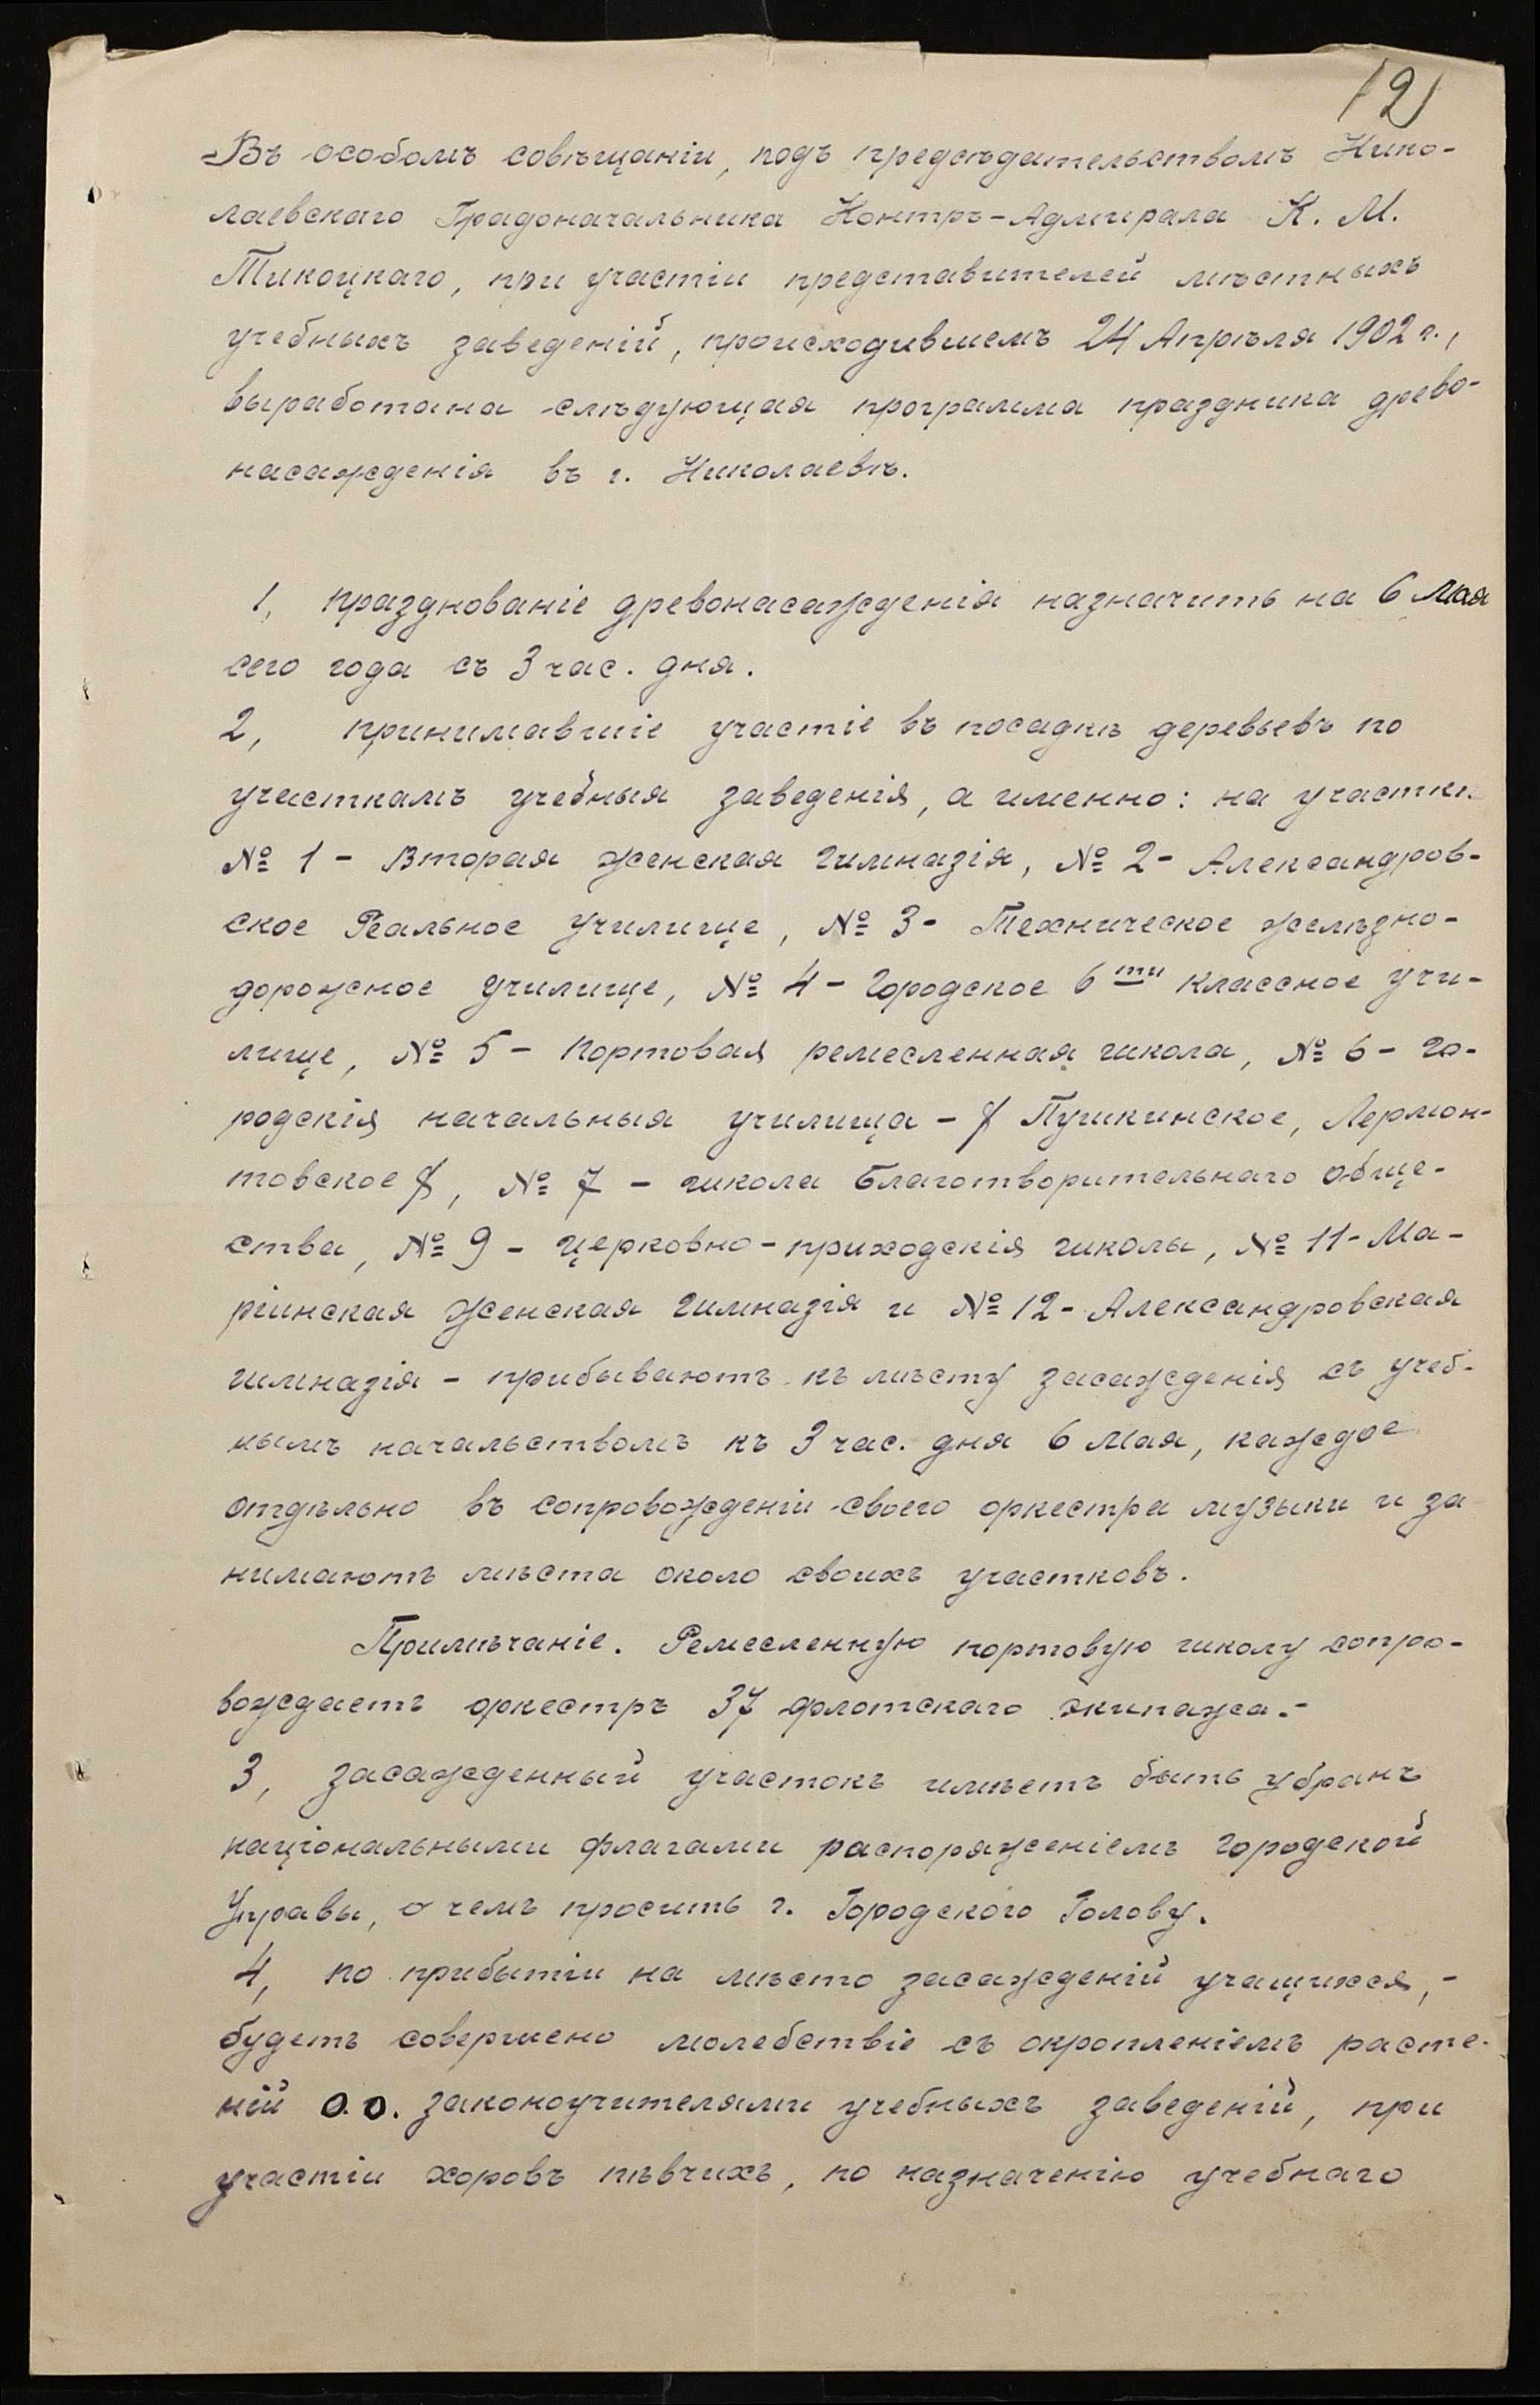 121
Въ особомъ совѣщаніи, подъ предсѣдательствомъ Нико-
лаевскаго Градоначальника Контръ-Адмирала К. М.
Тикоцкаго, при участіи представителей мѣстныхъ
учебныхъ заведеній, происходившемъ 24 Апрѣля 1902 г.,
выработана слѣдующая программа праздника древо-
насажденія въ г. Николаевѣ.
1, празднованіе древонасажденія назначить на 6 Мая
сего года съ 3 час. дня.
2, принимавшіе участіе въ посадкѣ деревьевъ по
участкамъ учебныя заведенія, а именно: на участкѣ
№ 1 - Вторая женская гимназія, № 2 - Александров-
ское Реальное училище, № 3 - Техническое желѣзно-
дорожное училище, № 4 - городское 6ти классное учи-
лище, № 5 - портовая ремесленная школа, № 6 - го-
родскія начальныя училища - / Пушкинское, Лермон-
товское /, № 7 - школа Благотворительнаго обще-
ства, № 9 - церковно-приходскія школы, № 11 - Ма-
ріинская женская гимназія и № 12 - Александровская
гимназія - прибываютъ къ мѣсту засажденія съ учеб-
нымъ начальствомъ къ 3 час. дня 6 Мая, каждое
отдѣльно въ сопровожденіи своего оркестра музыки и за
нимаютъ мѣста около своихъ участковъ.
Примѣчаніе. Ремесленную портовую школу сопро-
вождаетъ оркестръ 37 флотскаго экипажа.-
3, засажденный участокъ имѣетъ быть убранъ
національными флагами распоряженіемъ городской
Управы, о чемъ просить г. Городского Голову.
4, по прибытіи на мѣсто засажденій учащихся, -
будетъ совершено молебствіе съ окропленіемъ расте-
ній о.о. законоучителями учебныхъ заведеній, при
участіи хоровъ пѣвчихъ, по назначенію учебнаго